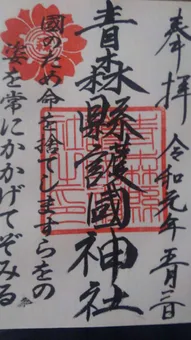 奉拝 令和元年 月 日
青森縣護國神社
國のため命を捨てしますらをの
姿を常にかかげてぞみる